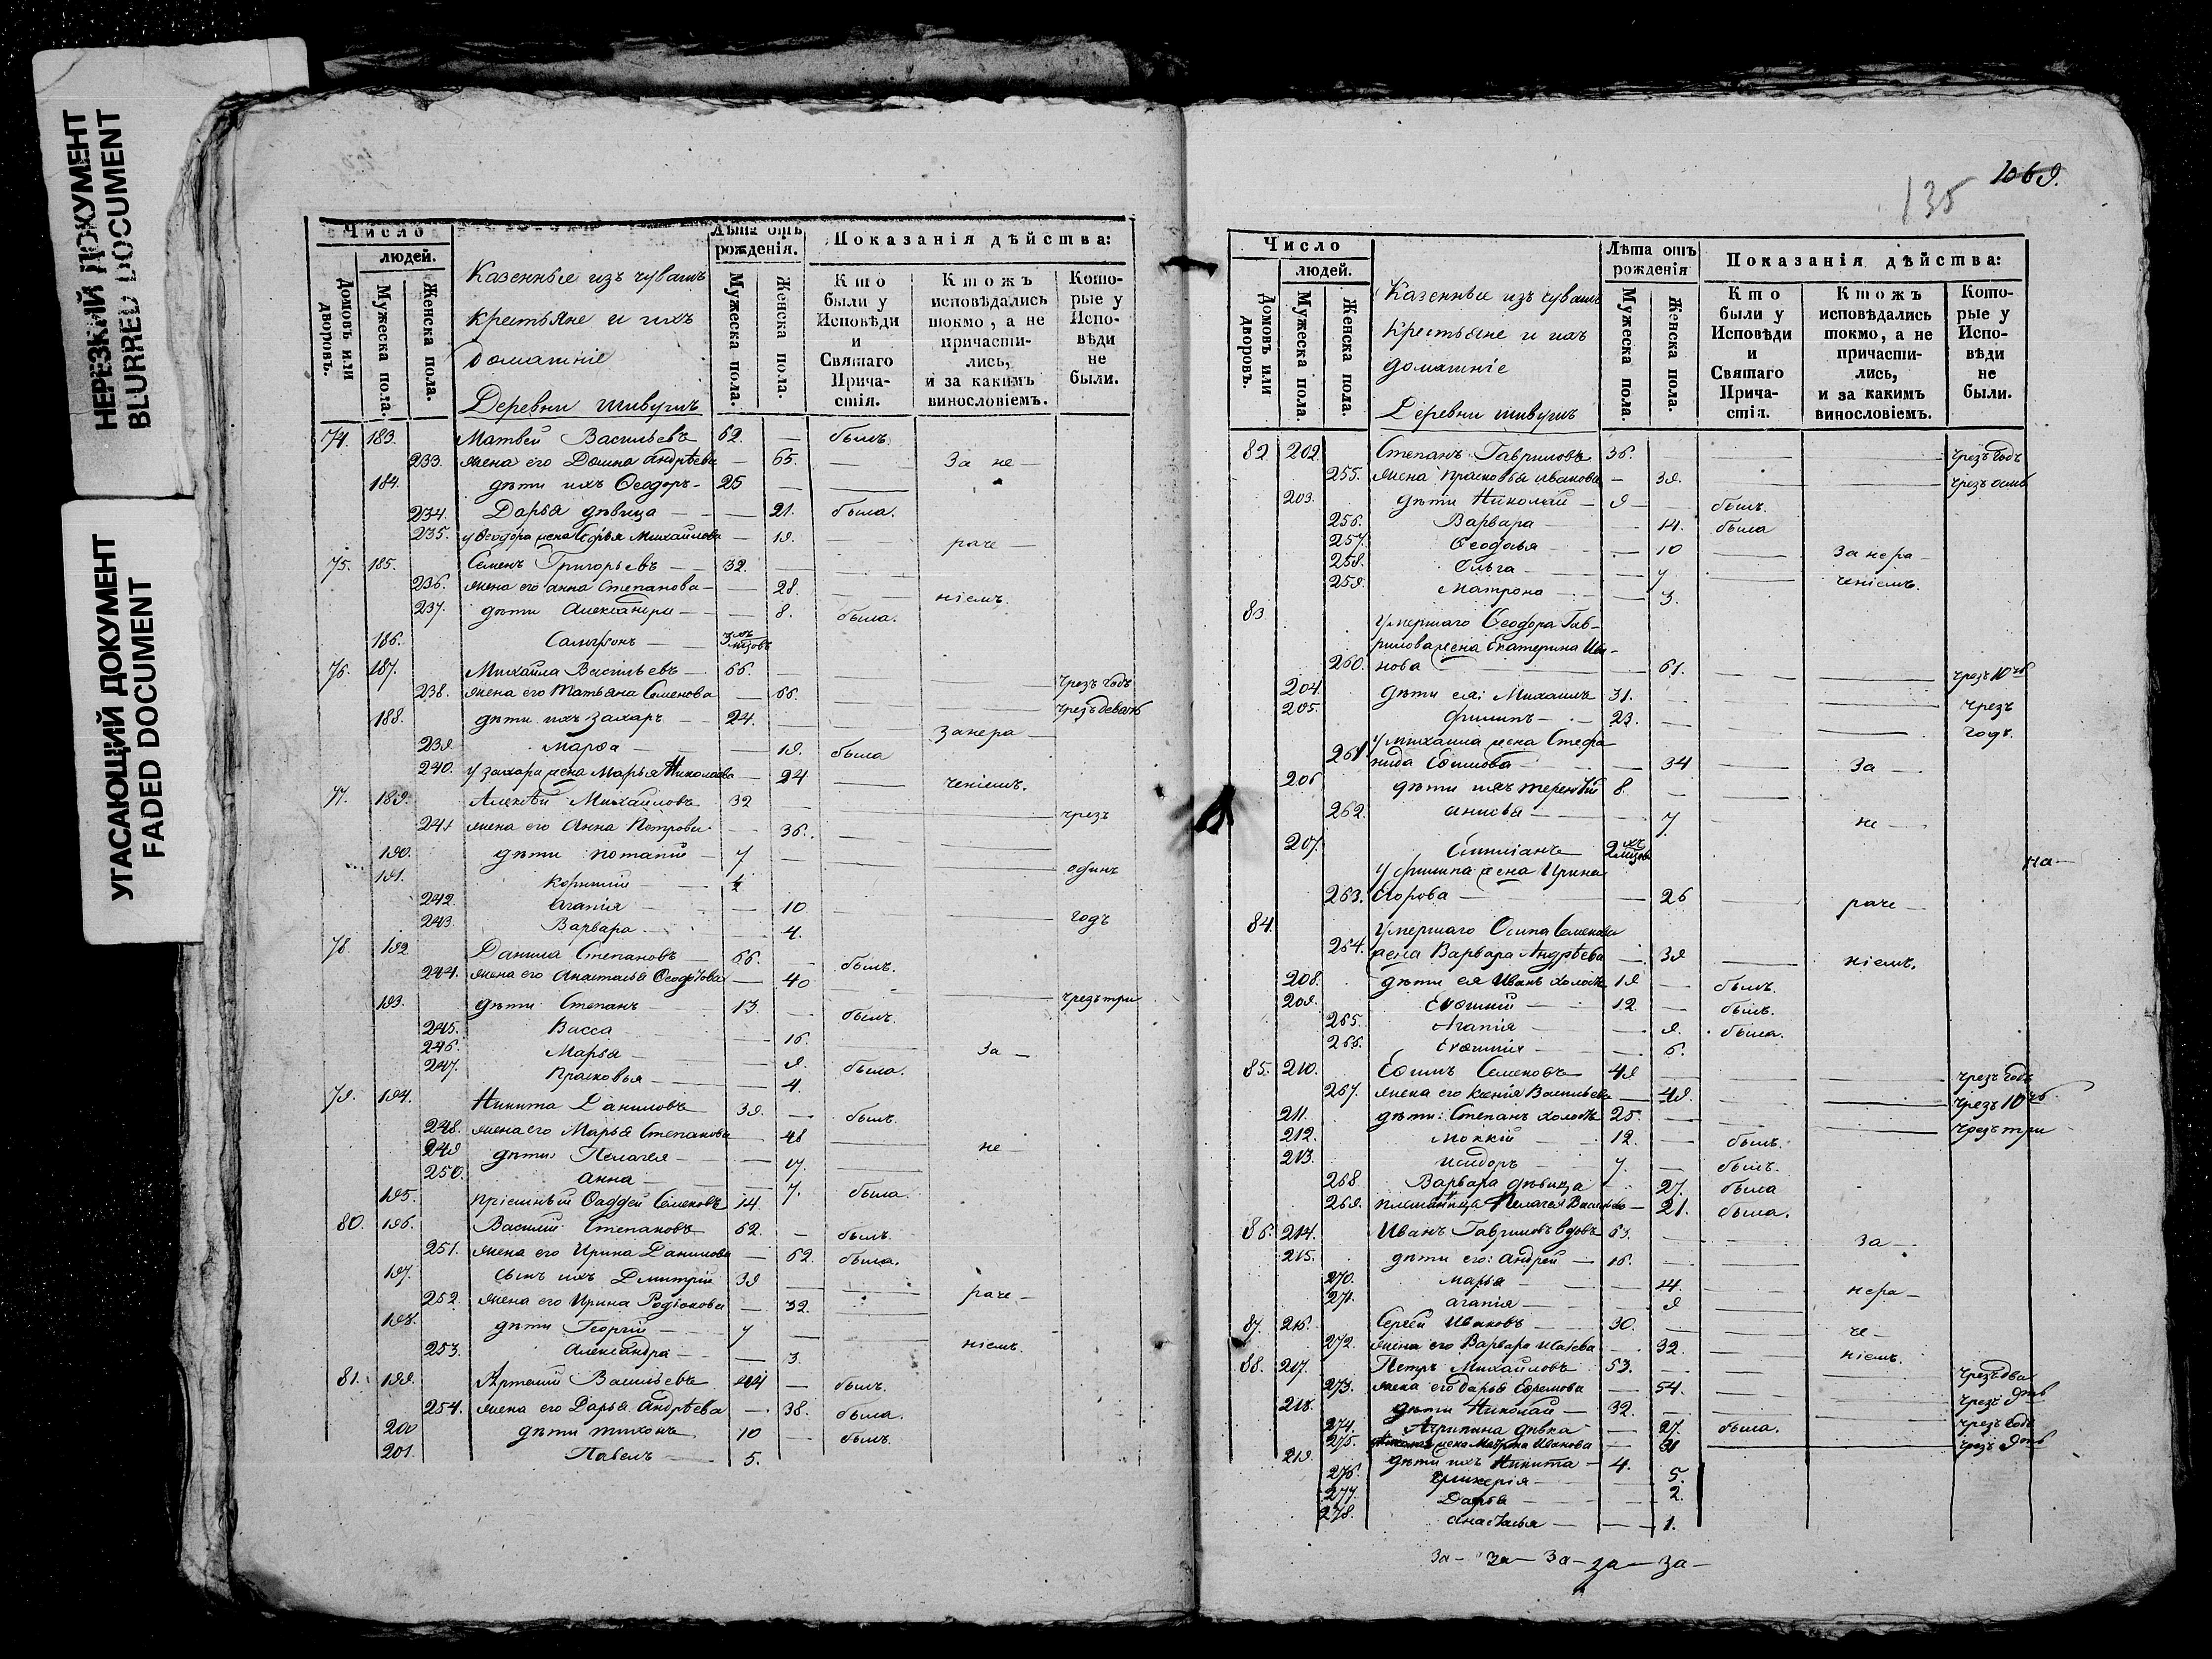 НЕРЕЗКИЙ ДОКУМЕНТ
BLURRED DOCUMENT
УГАСАЮЩИЙ ДОКУМЕНТ
FADED DOCUMENT
Число
людей.
Домовъ или дворовъ.
Мужеска пола.
Женска пола.
Казенные изъ чувашъ
крестьяне и ихъ
домашніе
Деревни
Лѣта отъ рожденія.
Мужеска пола.
Женска пола.
Показанія дѣйства:
Кто были у Исповѣди и Святаго Причастія.
Ктожъ исповѣдались токмо, а не причастились, и за какимъ винословіемъ.
Которые у Исповѣди не были.
74. 183. Матвей Васильевъ 62. — былъ.
233. жена его Домна Андрѣева — 65. — За не —
184. дѣти ихъ Ѳеодоръ — 25 —
234. Дарья дѣвица — — 21. была.
235. у Ѳеодора жена Софья Михайлова — 19. — раче —
75. 185. Семенъ Григорьевъ — 32. —
236. жена его анна Степанова — — 28. — ніемъ.
237. дѣти Александра — — 8. была.
186. — 3
76. 187. Михайла Васильевъ — 66. — чрезъ годъ
238. жена его Татьяна Семенова — 66. — чрезъ девять
188. дѣти ихъ Захаръ — 24. — Занера —
239. Марѳа — — 19. была
240. у захара жена Марья Николаева — 24 — ченіемъ.
77. 189. Алексѣй Михайловъ 32 — чрезъ
241 жена его Анна Петрова — 36. —
190. дѣти потапій — 7 — одинъ
191. Корнилій — 4
242. Агапія — — 10 — годъ
243. Варвара — — 4.
78. 192 Данила Степановъ — 66. — былъ.
244. жена его Анастасья — 40 — чрезъ три
193. дѣти Степанъ — 13. — былъ.
245. Васса — 16. — За —
246. Марья — — 9. была.
247. Прасковья — — 4.
79. 194. Никита Даниловъ 39. — былъ.
248. жена его Марья Степанова — 48 — не —
249 дѣти Пелагея — — 17. —
250. анна — — 7. была.
195. пріемный Ѳаддей Семеновъ 14.
80. 196. Василій Степановъ 62. — былъ.
251. жена его Ирина Данилова — 62. была.
197. сынъ ихъ Дмитрій 39 — раче —
252. жена его Ирина Родіонова — 32. —
198. дѣти Георгій — 7 — ніемъ.
253. Александра — — 3.
81. 199. Артемій Васильевъ 44 — былъ.
254. жена его Дарья Андрѣева — 38. была.
200 дѣти тихонъ 10 — былъ.
201. Павелъ — 5.
1069.
135
Число
людей.
Домовъ или дворовъ.
Мужеска пола.
Женска пола.
Казенные изъ чувашъ
крестьяне и ихъ
домашніе
Деревни
Лѣта отъ рожденія
Мужеска пола.
Женска пола.
Показанія дѣйства:
Кто были у Исповѣди и Святаго Причастія.
Ктожъ исповѣдались токмо, а не причастились, и за какимъ винословіемъ.
Которые у Исповѣди не были.
82 202. Степанъ Гавриловъ 36. — чрезъ годъ
255. жена Прасковья иванова — 39. — чрезъ
203. дѣти Николай — 9 — былъ.
256. Варвара — — 14. была
257. Ѳеодосья — — 10 — Занера —
258. Ольга — — 7 — ченіемъ.
259. Матрона — — 3.
83 умершаго Ѳеодора Гав-
рилова жена Екатерина Ива-
260. нова — — 61. — чрезъ 10
204. дѣти ея: Михаилъ 31. — чрезъ
205. филипъ — 23. — годъ.
у михаила жена Стефа-
261 нида Ефимова — — 34 — За —
206 дѣти ихъ терентій 8. —
262. анисья — — 7. — не —
207. 2
у филипа жена Ирина
263. Егорова — — 26 — раче —
на —
84. умершаго Осипа Семенова
264. жена Варвара Андрѣева — 39 — ніемъ.
208. дѣти ея Иванъ холостъ 19 — былъ.
209. Евѳимій — 12 — былъ.
265. Агапія — — 9. была.
266. Евѳимія — — 6.
85. 210. Ефимъ Семеновъ 49 — чрезъ годъ
267. жена его Ксенія Васильева — 49. — чрезъ 10
211. дѣти: Степанъ холостъ 25. — чрезъ три
212. мокій — 12. — былъ.
213. исидоръ — 7. — былъ.
268 Варвара дѣвица — 27. была
269. Пелагея — 21. была.
86. 214. Иванъ Гавриловъ вдовъ 63. — За —
215. дѣти его: андрей — 16. —
270. марья — — 14. — нера —
271. агапія — — 9 —
87. 216. Сергѣй Ивановъ — 30. — че —
272. жена его Варвара — 32. — ніемъ.
88. 217. Петръ Михайловъ 53. — чрезъ два
273. жена его дарья Ефремова — 54. — чрезъ
218. дѣти Николай — 32. — чрезъ годъ
274. Агрипина дѣвка — 27. была.
275. жена Иванова — 31 — чрезъ
219. дѣти ихъ Никита — 4.
276. Гликерія — — 5.
277. Дарья — — 2.
278. анастасья — — 1.
За — За — За — За — За —